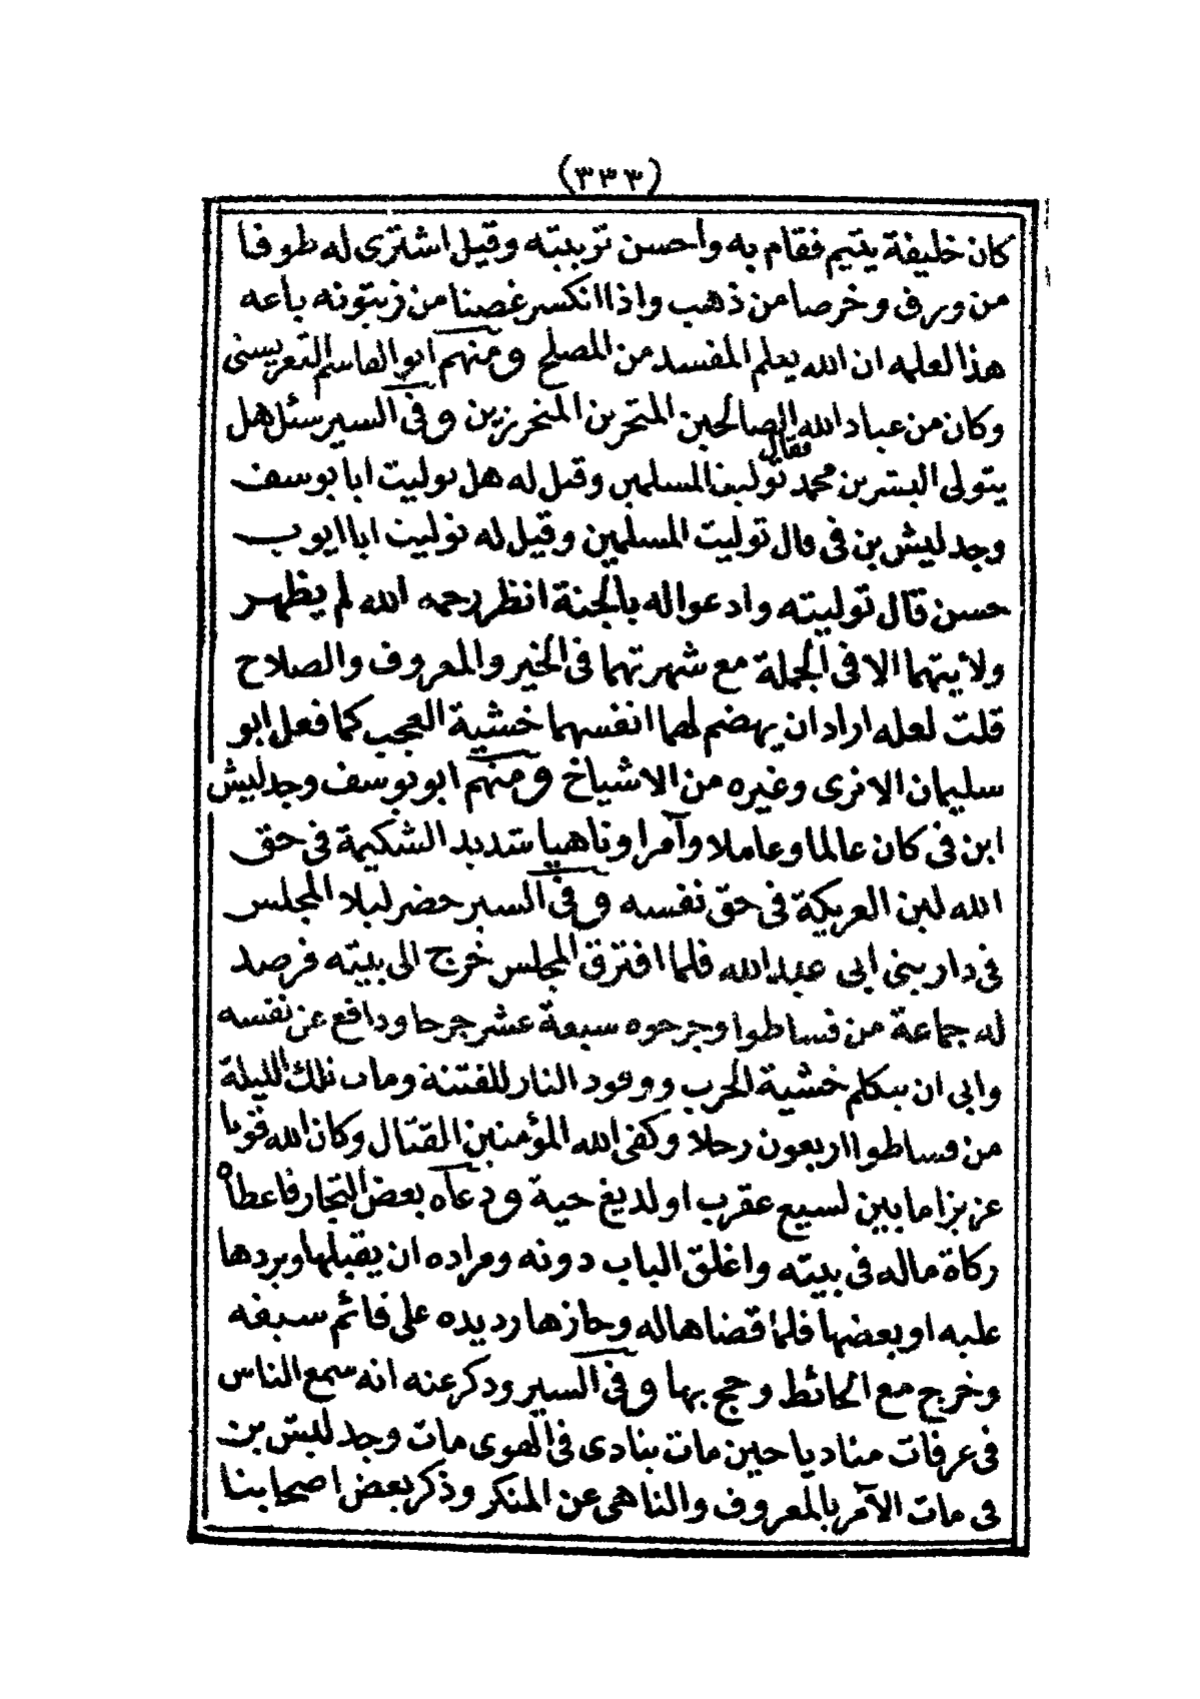 (٣٣٣)
كان خليفة يتيم فقام به واحسن تربيته وقيل اشترى له طوفا
من ورق وخرصا من ذهب واذا انكسر غصنا من زيتونه باعه
هذا لعلمه ان الله يعلم المفسد من المصلح ومنهم ابو القاسم التعريسنى
وكان من عباد الله الصالحين المتحرين المتحرزين وفى السير سئل هل
يتولى البشر بن محمد فقال توليت المسلمين وقيل له هل توليت ابا يوسف
وجدليش بن فى قال توليت المسلمين وقيل له توليت ابا ايوب
حسن قال توليته وادعوا له بالجنة انظر رحمه الله لم يظهر
ولايتهما الا فى الجملة مع شهرتهما فى الخير والمعروف والصلاح
قلت لعله اراد ان يهضم لهما انفسهما خشية العجب كما فعل ابو
سليمان الازرى وغيره من الاشياخ ومنهم ابو يوسف وجدليش
ابن فى كان عالما وعاملا وآمرا وناهيا شديد الشكيمة فى حق
الله لين العريكة فى حق نفسه وفى السير حضر ليلا المجلس
فى دار بنى ابى عبد الله فلما افترق المجلس خرج الى بيته فرصد
له جماعة من فساطوا وجرحوه سبعة عشر جرحا ودافع عن نفسه
وابى ان يتكلم خشية الحرب ووقود النار للفتنة ومات تلك الليلة
من فساطوا اربعون رجلا وكفى الله المؤمنين القتال وكان الله قويا
عزيزا ما بين لسيع عقرب او لديغ حية ودعاه بعض التجار فاعطاه
زكاة ماله فى بيته واغلق الباب دونه ومراده ان يقبلها ويردها
عليه او بعضها فلما قضاها له وحازها رد يده على قائم سيفه
وخرج مع الحائط وحج بها وفى السير وذكر عنه انه سمع الناس
فى عرفات مناديا حين مات ينادى فى الهوى مات وجدليش بن
فى مات الآمر بالمعروف والناهى عن المنكر وذكر بعض اصحابنا